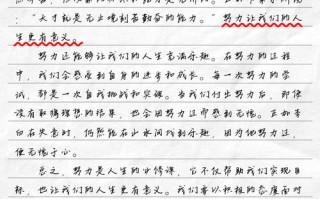 “天才就是无止境刻苦勤奋的能力。”努力让我们的人
生更有意义。
努力还能够让我们的人生充满乐趣。在努力的过程
中，我们会感受到自身的进步和成长。每一次努力的尝
试，都是一次自我挑战和突破。当我们付出努力后，即使
没有取得理想的结果，也会因努力过而感到无憾。正如李
白在失意时，仍然能在山水间找到乐趣，因为他努力过，
便无愧于心。
总之，努力是人生的必修课，它不仅帮助我们实现目
标，也让我们的人生更有意义。我们要以积极的态度面对